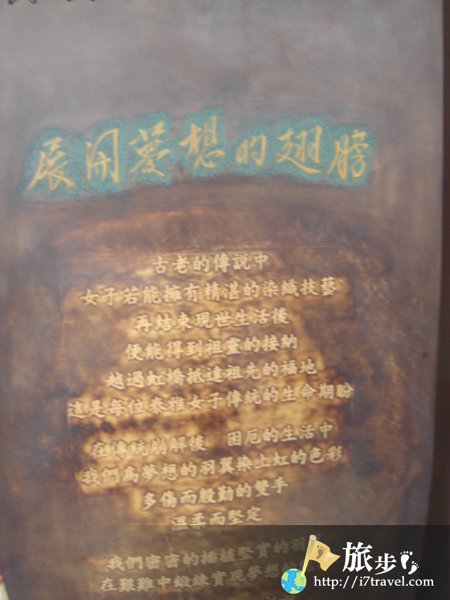 展開夢想的翅膀
古老的傳說中
女子若能擁有精湛的染織技藝
再結束現世生活後
便能得到祖靈的接納
越過虹橋抵達祖先的福地
這是每位泰雅女子傳統的生命期盼
在傳統崩解後 困厄的生活中
我們為夢想的羽翼染上虹的色彩
多傷而殷勤的雙手
溫柔而堅定
我們密密的捕植堅實的羽
在艱難中鍛鍊實現夢想
旅步
http://i7travel.com